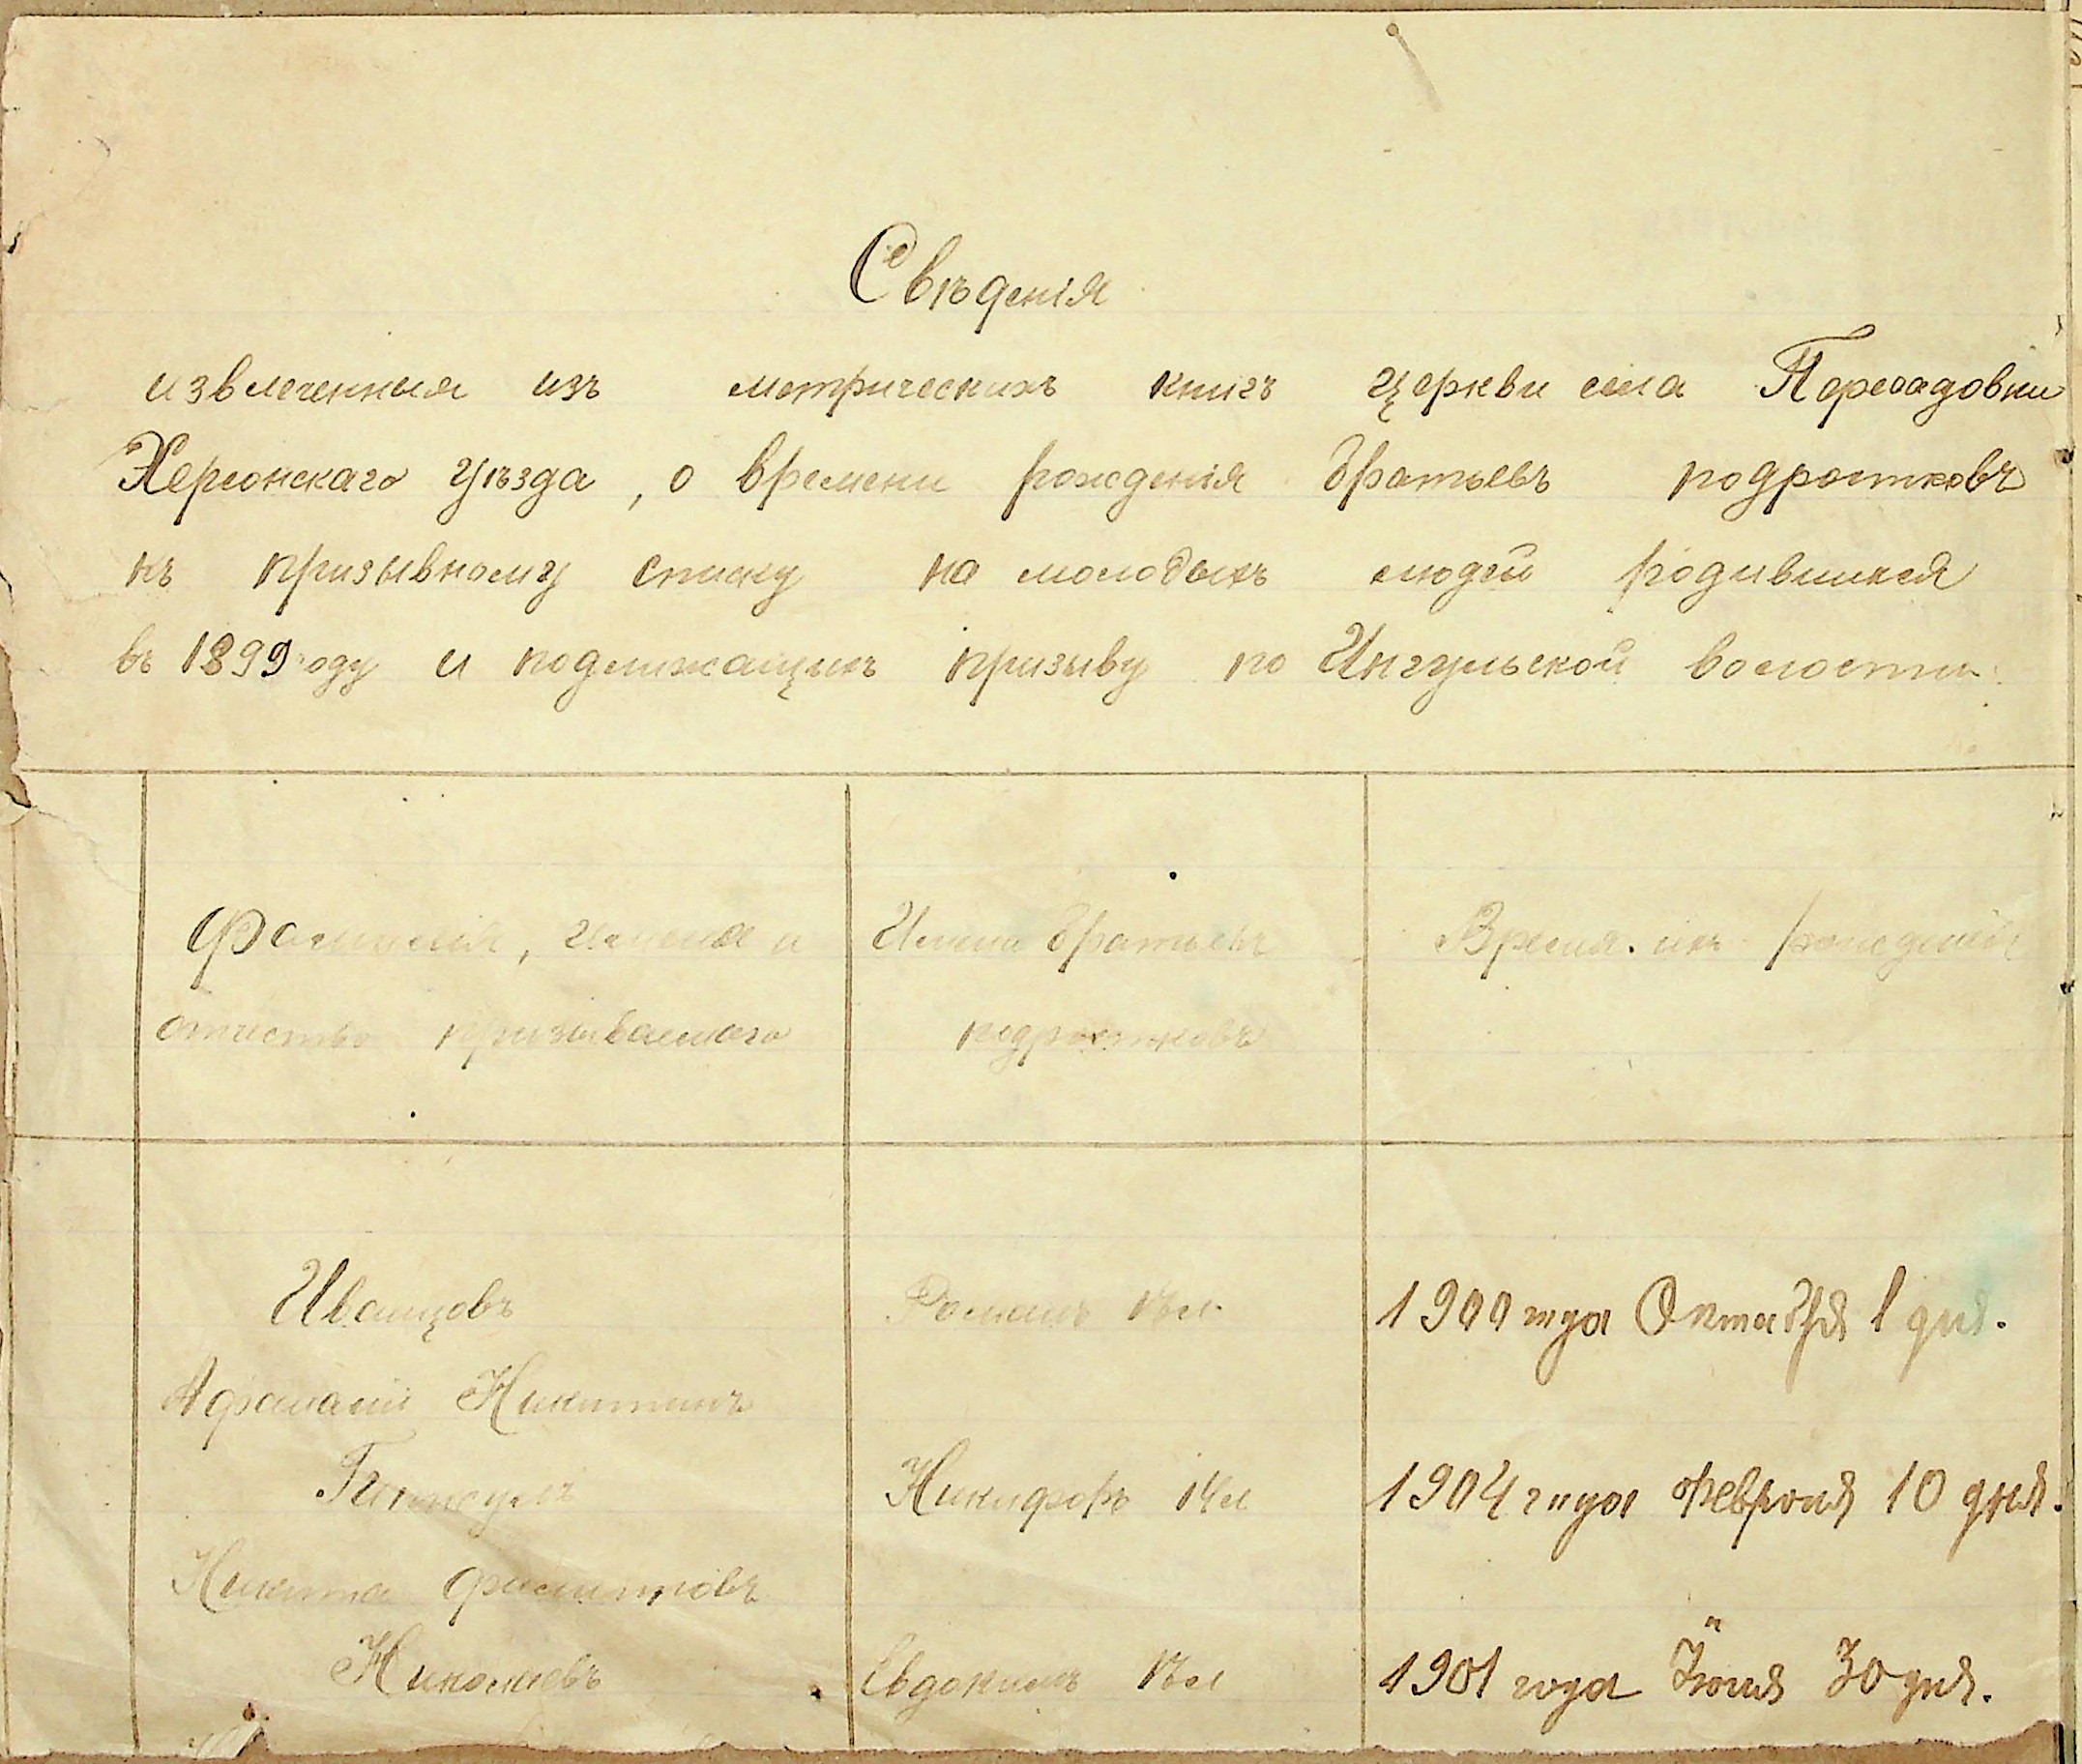 Свѣденія
извлеченныя изъ метрическихъ книгъ церкви села Пересадовки
Херсонскаго уѣзда, о времени рожденія братьевъ подростковъ
къ призывному списку на молодыхъ людей родившихся
въ 1899 году и подлежащихъ призыву по Ингульской волости.
Фамилія, имена и
отчество призываемаго
Имена братьевъ
подростковъ
Время ихъ рожденія
Иванцовъ
Романъ
1900 года Октября 1 дня.
Афанасій Никитинъ
Никифоръ 14 л
1904 года Февраля 10 дня.
Никита Филипповъ
Николаевъ
Евдокимъ 17 л
1901 года Іюля 30 дня.